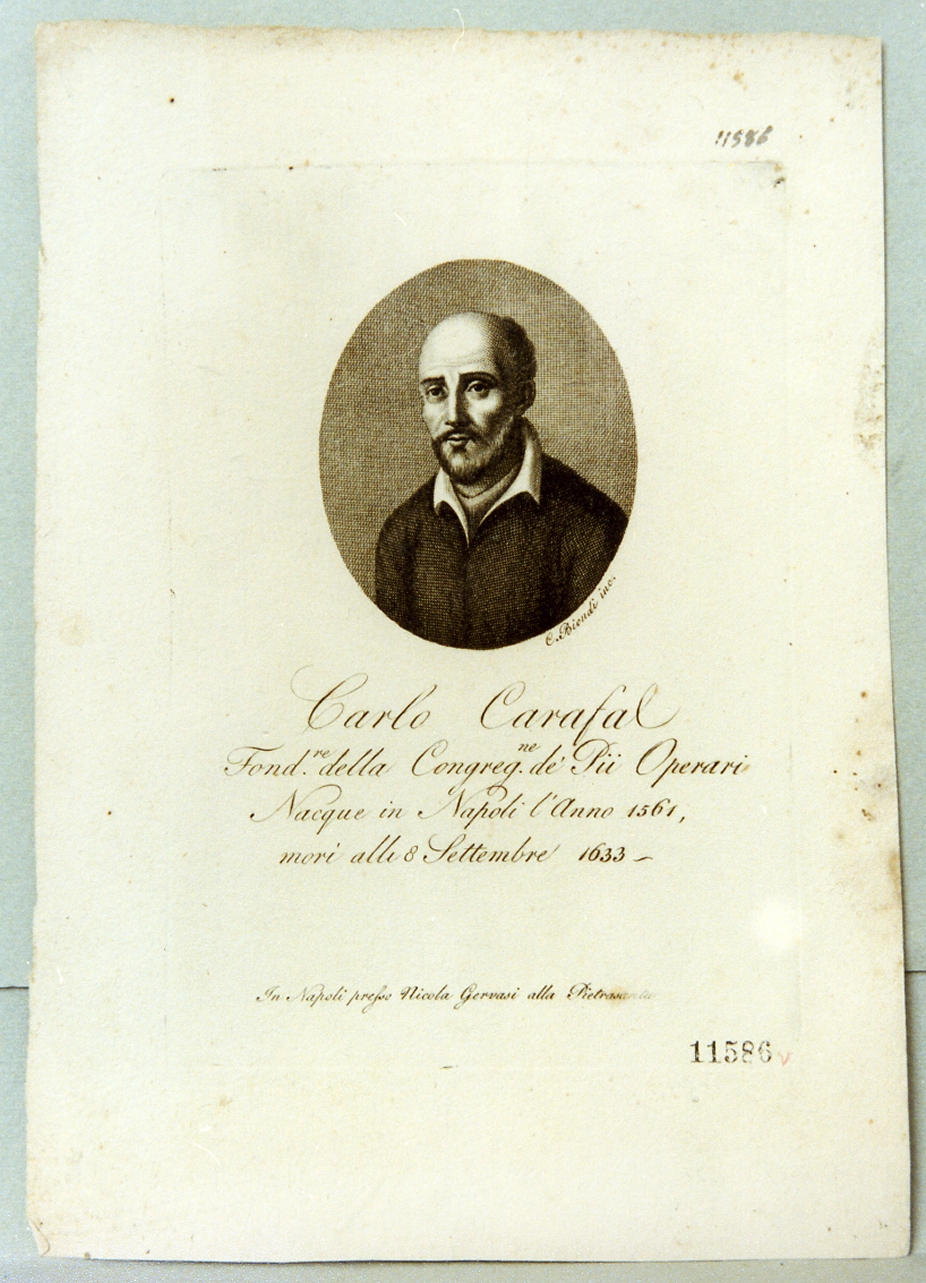 11586
C. Biondi inc.
Carlo Carafa
Fond.re della Congreg.ne de' Pii Operari
Nacque in Napoli l'Anno 1561,
morì alli 8 Settembre 1633
In Napoli presso Nicola Gervasi alla Pietrasanta
11586